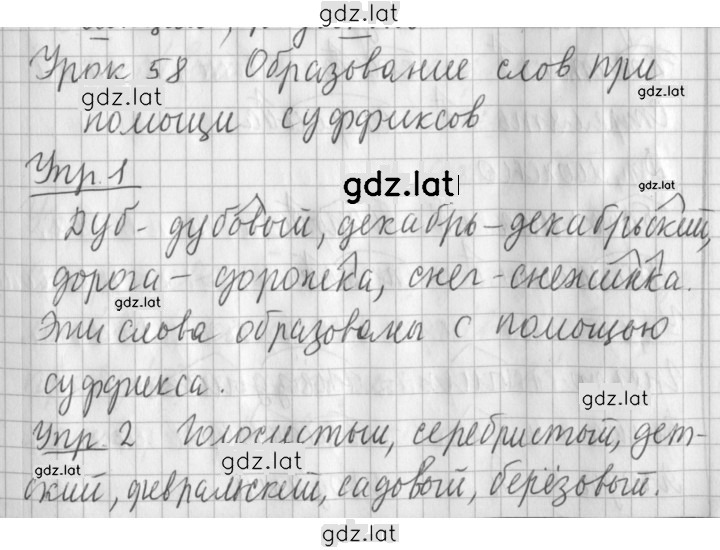 gdz.lat
Урок 58 Образование слов при
gdz.lat
gdz.lat
помощи суффиксов
Упр. 1
gdz.lat
gdz.lat
gdz.lat
Дуб - дубовый, декабрь - декабрьский,
дорога - дорожка, снег - снежинка.
gdz.lat
Эти слова образованы с помощью
суффикса.
gdz.lat
Упр. 2 Голосистый, серебристый, дет-
gdz.lat
gdz.lat
ский, февральский, садовый, берёзовый.
gdz.lat